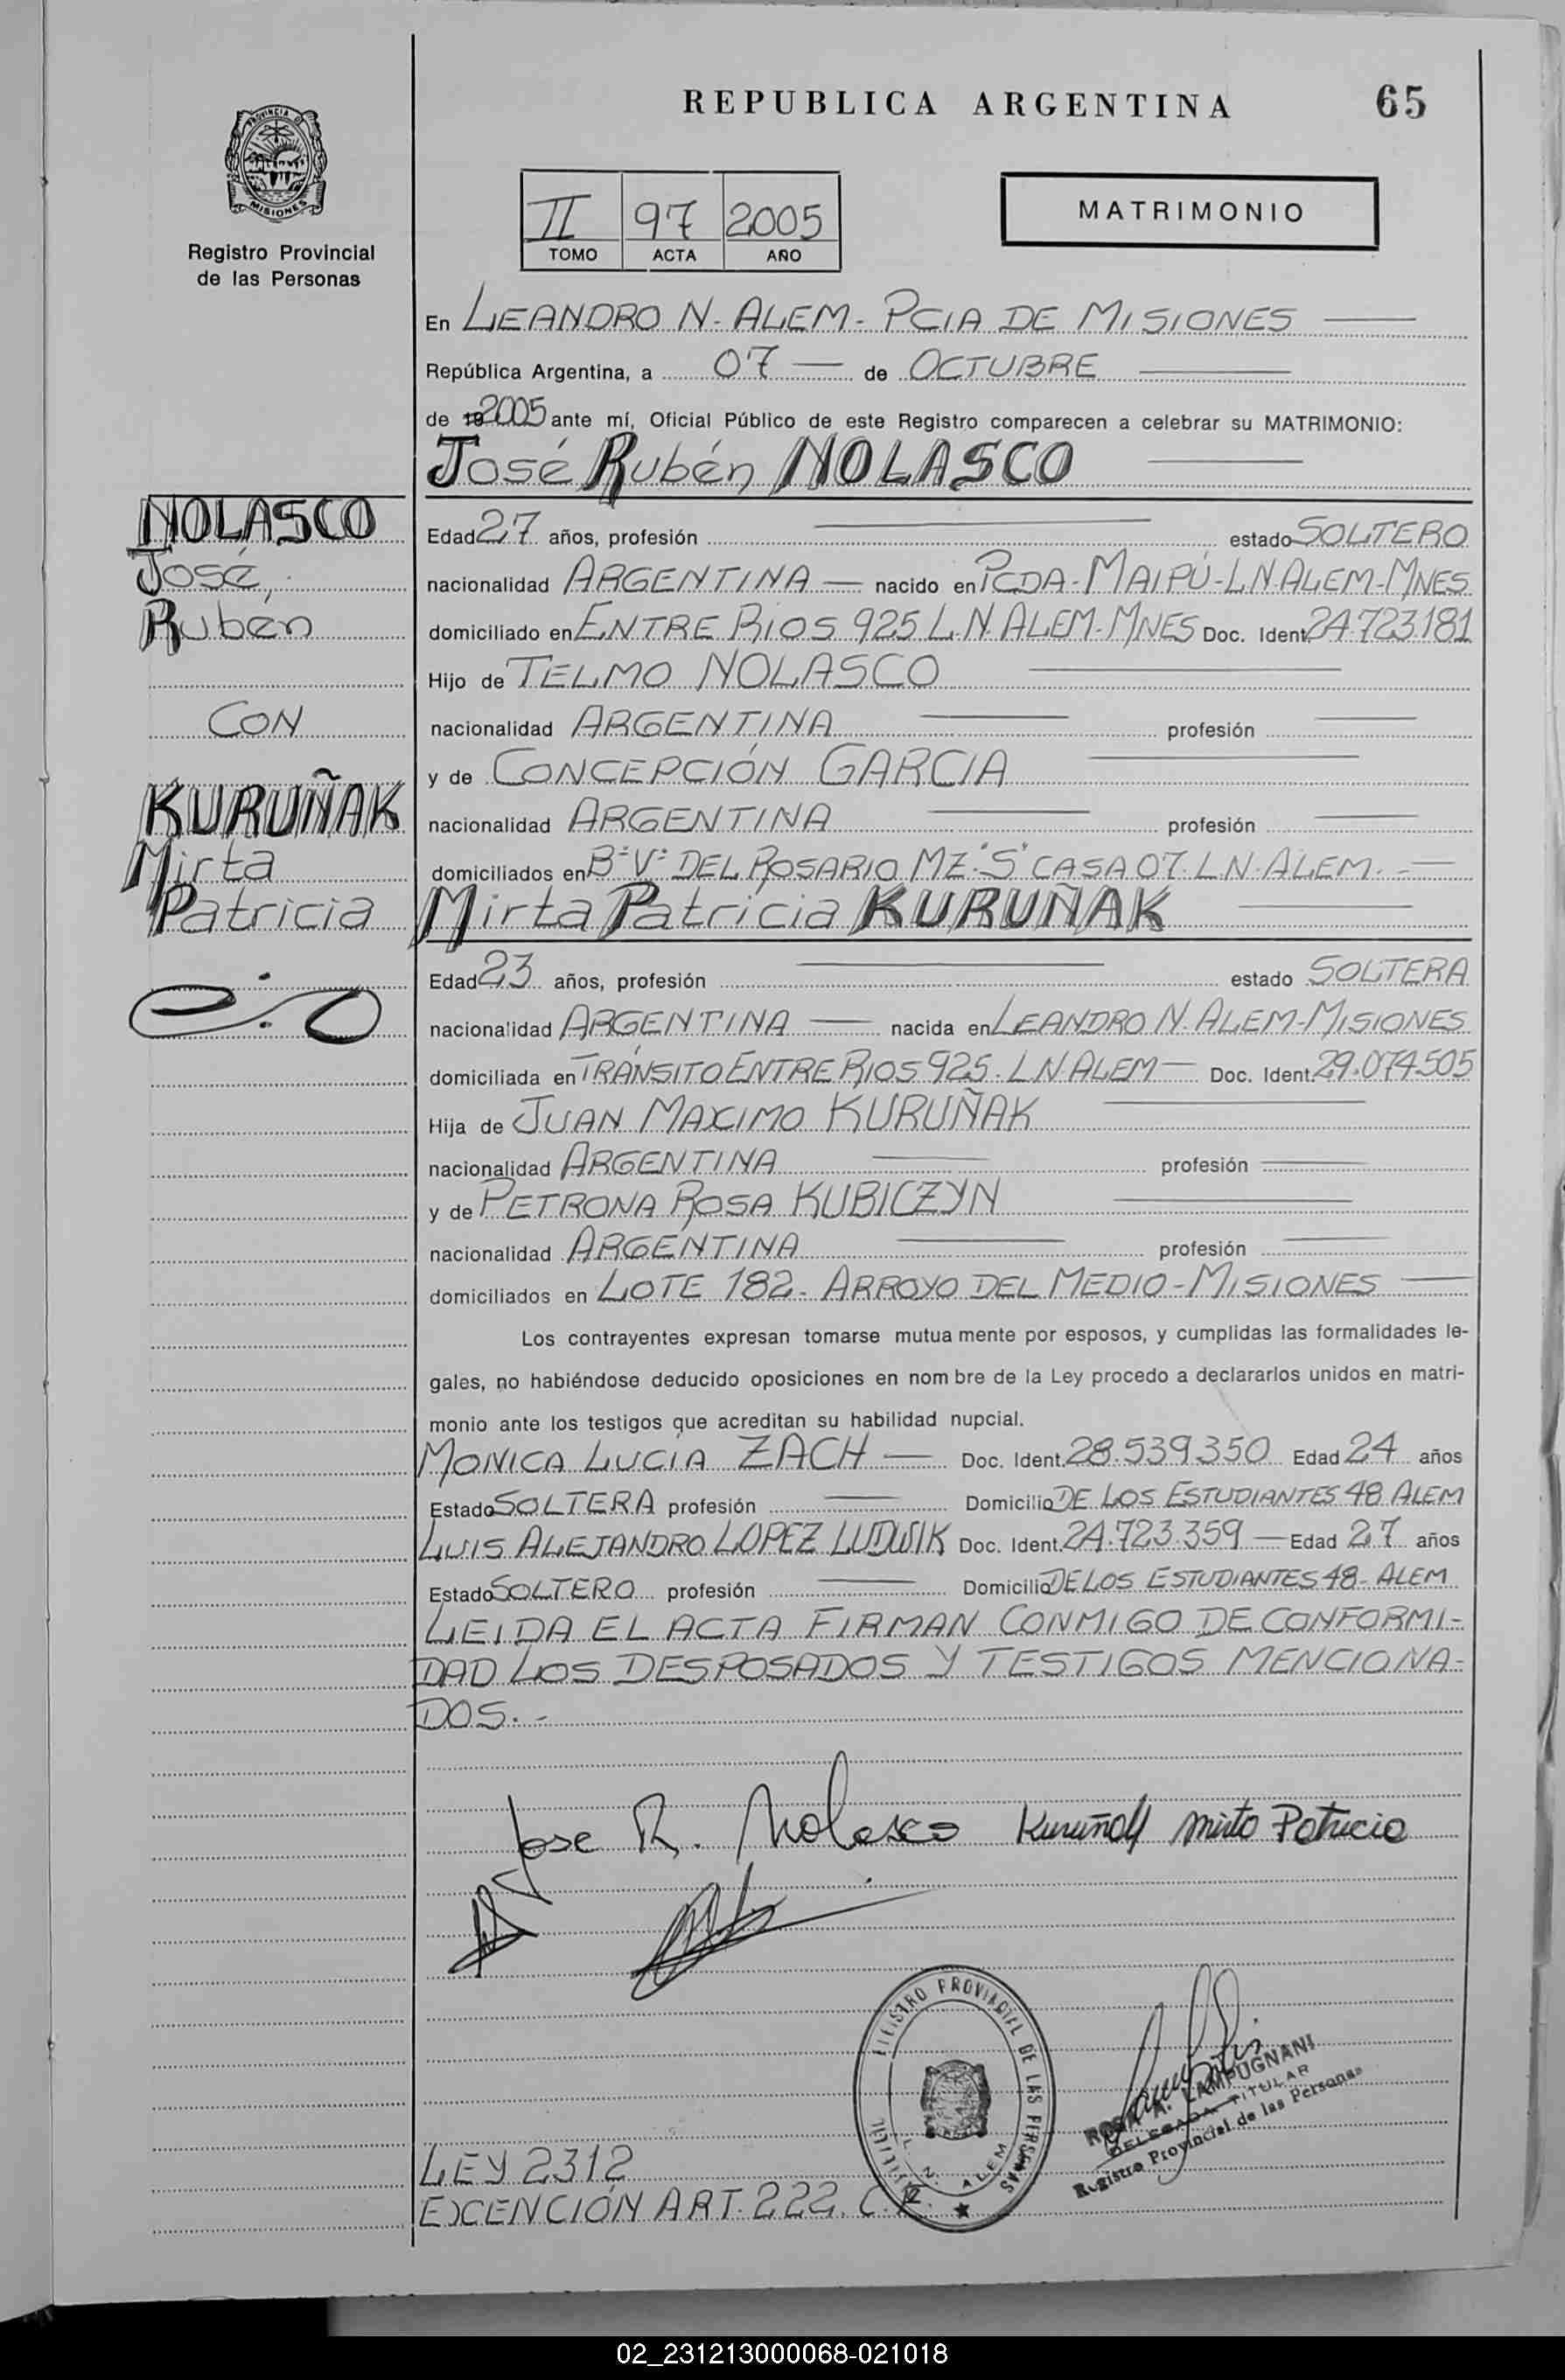 REPUBLICA ARGENTINA
65
PROVINCIA D
MISIONES
Registro Provincial
de las Personas
II 97 2005
TOMO ACTA AÑO
MATRIMONIO
En LEANDRO N. ALEM - PCIA DE MISIONES
República Argentina, a 07 de OCTUBRE
de 19 2005 ante mí, Oficial Público de este Registro comparecen a celebrar su MATRIMONIO:
José Rubén NOLASCO
NOLASCO
José,
Rubén
CON
KURUÑAK
Mirta
Patricia
Edad 27 años, profesión estado SOLTERO
nacionalidad ARGENTINA nacido en PCDA - MAIPÚ - L N ALEM - MNES
domiciliado en ENTRE RIOS 925 L.N. ALEM - MNES Doc. Ident. 24.723.181
Hijo de TELMO NOLASCO
nacionalidad ARGENTINA profesión
y de CONCEPCIÓN GARCIA
nacionalidad ARGENTINA profesión
domiciliados en B° V° DEL ROSARIO MZ "S" CASA 07. L.N. ALEM.-
Mirta Patricia KURUÑAK
Edad 23 años, profesión estado SOLTERA
nacionalidad ARGENTINA nacida en LEANDRO N. ALEM - MISIONES
domiciliada en TRÁNSITO ENTRE RIOS 925. L N ALEM Doc. Ident. 29.074.505
Hija de JUAN MAXIMO KURUÑAK
nacionalidad ARGENTINA profesión
y de PETRONA ROSA KUBICZYN
nacionalidad ARGENTINA profesión
domiciliados en LOTE 182 - ARROYO DEL MEDIO - MISIONES
Los contrayentes expresan tomarse mutua mente por esposos, y cumplidas las formalidades le-
gales, no habiéndose deducido oposiciones en nom bre de la Ley procedo a declararlos unidos en matri-
monio ante los testigos que acreditan su habilidad nupcial.
MONICA LUCIA ZACH Doc. Ident. 28.539.350 Edad 24 años
Estado SOLTERA profesión Domicilio DE LOS ESTUDIANTES 48 ALEM
LUIS ALEJANDRO LOPEZ LUDWIK Doc. Ident. 24.723.359 Edad 27 años
Estado SOLTERO profesión Domicilio DE LOS ESTUDIANTES 48 - ALEM
LEIDA EL ACTA FIRMAN CONMIGO DE CONFORMI-
DAD LOS DESPOSADOS Y TESTIGOS MENCIONA-
DOS.-
Jose R. Nolasco Kuruñak Mirta Patricia
REGISTRO PROVINCIAL DE LAS PERSONAS
L. N. ALEM
ROSA A. LAMPUGNANI
DELEGADA TITULAR
Registro Provincial de las Personas
LEY 2312
EXCENCIÓN ART. 222. C.
02_231213000068-021018